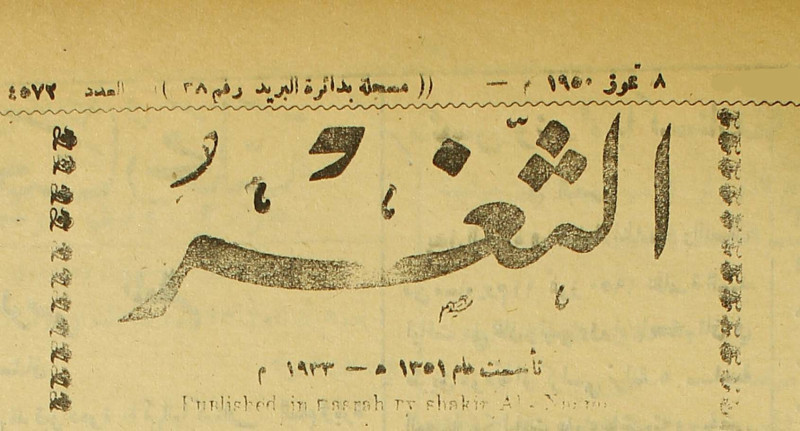 ٨ تموز ١٩٥٠ م — (( مسجلة بدائرة البريد رقم ٢٨ )) العدد ٤٥٧٢
الثغر
تأسست عام ١٣٥١ ه — ١٩٣٣ م
Published in Basrah by shakir Al -